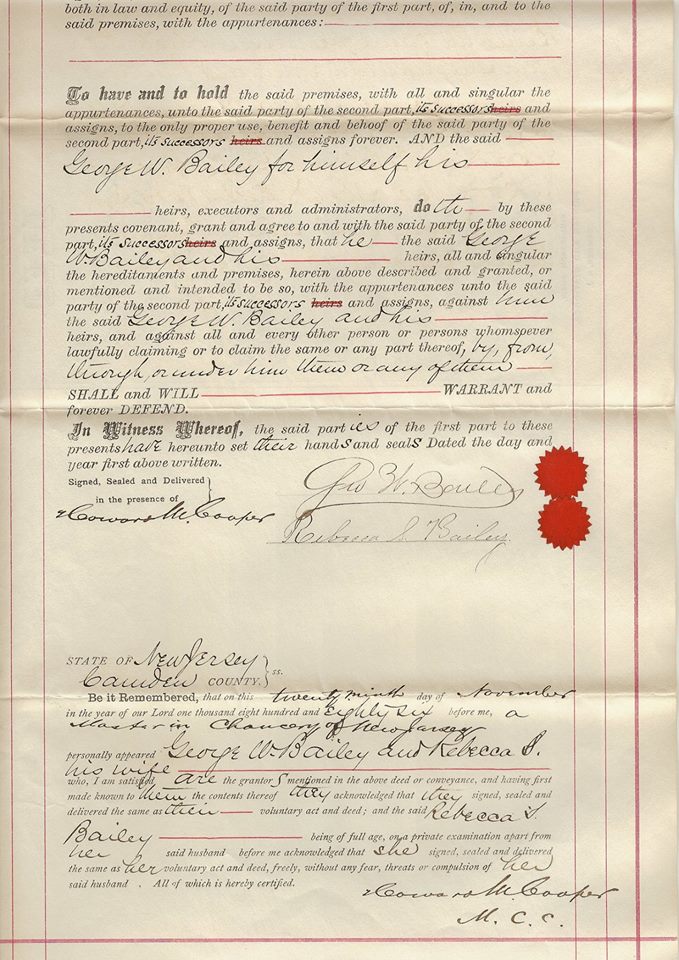 both in law and equity, of the said party of the first part, of, in, and to the
said premises, with the appurtenances:
To have and to hold the said premises, with all and singular the
appurtenances, unto the said party of the second part, its successors heirs and
assigns, to the only proper use, benefit and behoof of the said party of the
second part, its successors heirs and assigns forever. AND the said
George W. Bailey for himself his
heirs, executors and administrators, doth by these
presents covenant, grant and agree to and with the said party of the second
part, its successors heirs and assigns, that he the said George
W. Bailey and his heirs, all and singular
the hereditaments and premises, herein above described and granted, or
mentioned and intended to be so, with the appurtenances unto the said
party of the second part, its successors heirs and assigns, against him
the said George W. Bailey and his
heirs, and against all and every other person or persons whomsoever
lawfully claiming or to claim the same or any part thereof, by, from,
through, or under him them or any of them
SHALL and WILL WARRANT and
forever DEFEND.
In Witness Whereof, the said parties of the first part to these
presents have hereunto set their hands and seals Dated the day and
year first above written.
Signed, Sealed and Delivered
in the presence of
Howard M. Cooper
Geo W. Bailey
Rebecca S. Bailey
STATE OF New Jersey
Camden COUNTY. } ss.
Be it Remembered, that on this twenty ninth day of November
in the year of our Lord one thousand eight hundred and eighty six before me, a
Master in Chancery of New Jersey
personally appeared George W. Bailey and Rebecca S.
his wife
who, I am satisfied are the grantors mentioned in the above deed or conveyance, and having first
made known to them the contents thereof they acknowledged that they signed, sealed and
delivered the same as their voluntary act and deed; and the said Rebecca S.
Bailey being of full age, on a private examination apart from
her said husband before me acknowledged that she signed, sealed and delivered
the same as her voluntary act and deed, freely, without any fear, threats or compulsion of her
said husband . All of which is hereby certified.
Howard M. Cooper
M. C. C.